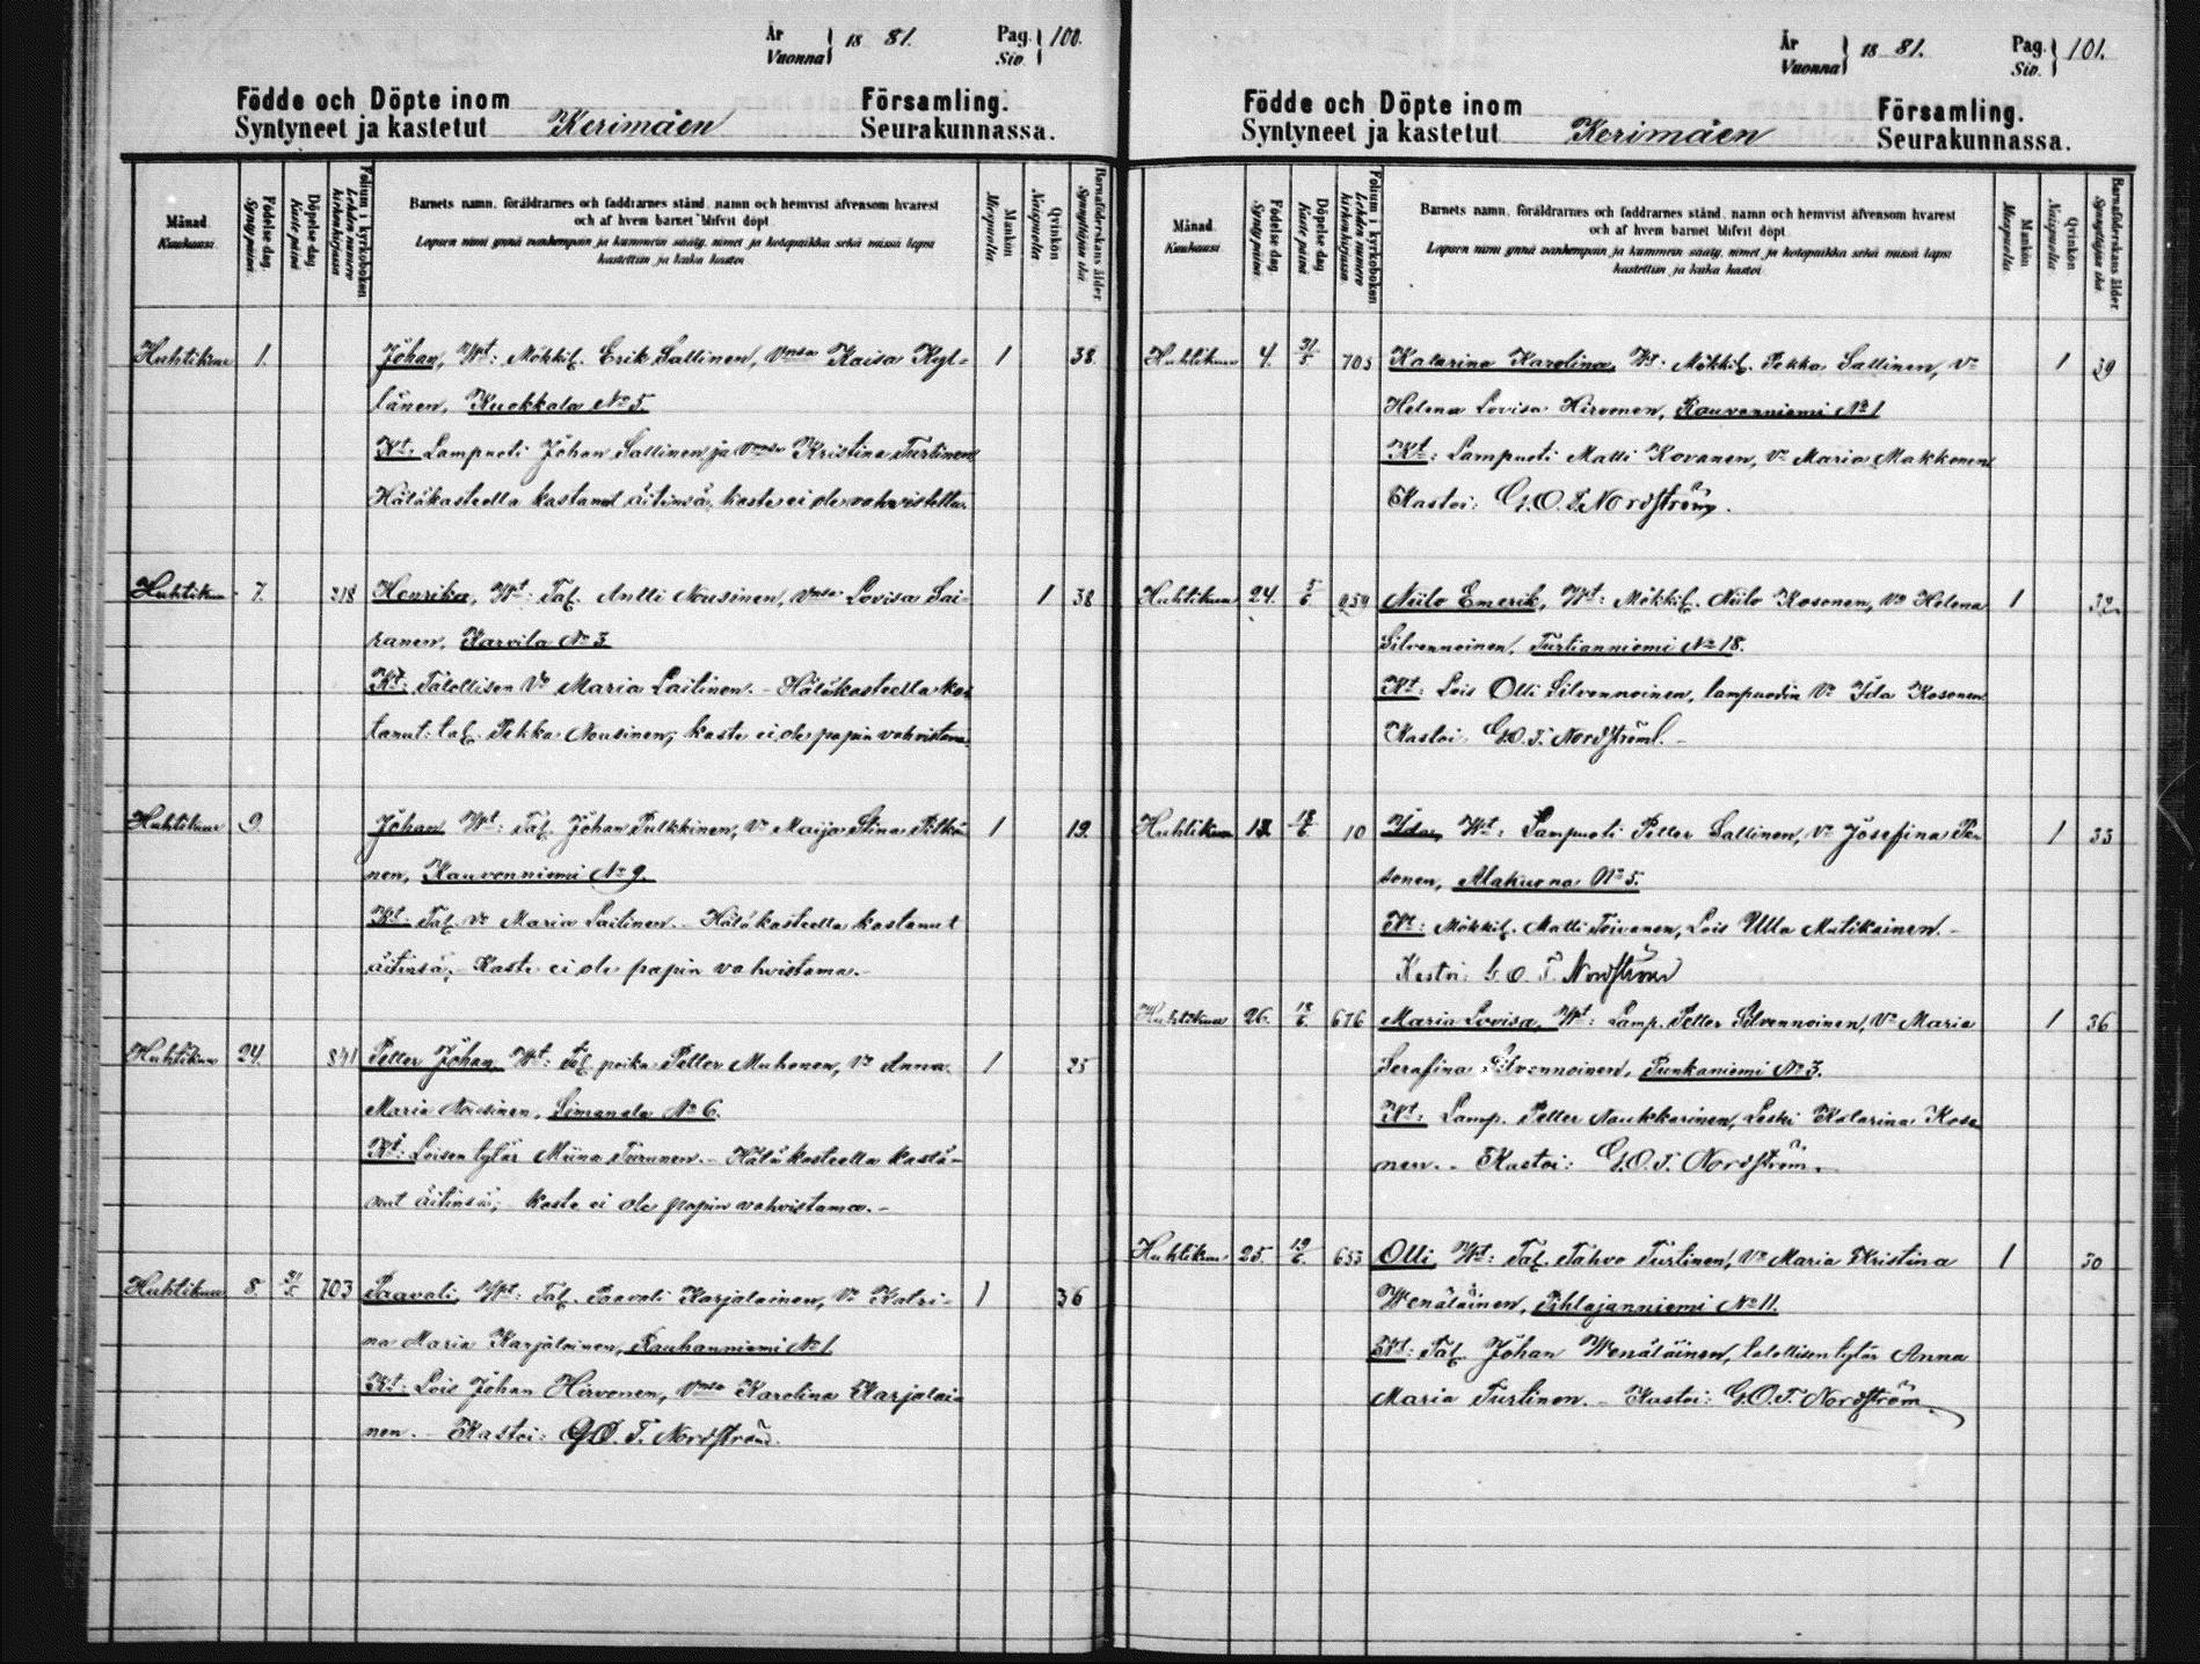 År
Vuonna } 18 81.
Pag.
Siv. } 100.
Födde och Döpte inom
Syntyneet ja kastetut Kerimäen
Församling.
Seurakunnassa.
Månad
Kuukausi.
Födelse dag.
Syntypäivä.
Döpelse dag
Kaste päivä
Folium i kyrkoboken
Lehden numero kirkonkirjassa
Barnets namn, föräldrarnes och faddrarnes stånd, namn och hemvist äfvensom hvarest
och af hvem barnet blifvit döpt
Lapsen nimi ynnä vanhempain ja kummein sääty, nimet ja kotopaikka sekä missä lapsi
kastettiin ja kuka kastoi
Mankön
Miespuolta.
Qvinkön
Naispuolta
Barnaföderskans ålder
Synnyttäjän ikä.
Huhtikuu 1. Johan, Wt: Mökkil. Erik Sallinen, Vmsa Kaisa Kyl= 1 38.
länen, Kuokkala No 5.
Kt: Lampuoti Johan Sallinen ja Vmsa Kristina Turtinen
Hätäkasteella kastanut äitinsä, kaste ei ole vahvistettu.
Huhtikuu 7. 218 Henrika, Wt: Tal. Antti Nousinen, Vmsa Lovisa Sai- 1 38
ranen, Karvila No 3.
Kt: Talollisen Vo Maria Laitinen. - Hätäkasteella kas
tanut: tal. Pekka Nousinen; kaste ei ole papin vahvistama.
Huhtikuu 9. Johan Wt: Tal. Johan Pulkkinen, Vo Maija Stina Pitkä 1 19.
nen, Rauvonniemi No 9.
Kt: Tal. Vo Maria Laitinen. - Hätäkasteella kastanut
äitinsä; Kaste ei ole papin vahvistama. -
Huhtikuu 24. 841 Petter Johan, Wt: Tal. poika Petter Muhonen, Vo Anna 1 25
Maria Nousinen, Simanala No 6.
Kt: Loisen tytär Miina Turunen. - Hätäkasteella kasta-
nut äitinsä; kaste ei ole papin vahvistama. -
Huhtikuu 8. 31/5 703 Paavali, Wt: Tal. Paavali Karjalainen, Vo Katri- 1 36
na Maria Karjalainen, Rauhanniemi No 1.
Kt: Lois Johan Hirvonen, Vmsa Karolina Karjalai-
nen. - Kastoi: G.O. T. Nordström.
År
Vuonna } 18 81.
Pag.
Siv. } 101.
Födde och Döpte inom
Syntyneet ja kastetut Kerimäen
Församling.
Seurakunnassa.
Månad
Kuukausi.
Födelse dag
Syntypäivä.
Döpelse dag
Kaste päivä
Folium i kyrkoboken
Lehden numero kirkonkirjassa
Barnets namn, föräldrarnes och faddrarnes stånd, namn och hemvist äfvensom hvarest
och af hvem barnet blifvit döpt
Lapsen nimi ynnä vanhempain ja kummein sääty, nimet ja kotopaikka sekä missä lapsi
kastettiin ja kuka kastoi
Mankön
Miespuolta.
Qvinkön
Naispuolta
Barnaföderskans ålder
Synnyttäjän ikä.
Huhtikuu 4. 31/5 705 Katarina Karolina, Wt: Mökkil. Pekka Sallinen, Vo 1 39
Helena Lovisa Hirvonen, Rauvonniemi No 1
Kt: Lampuoti Matti Kovanen, Vo Maria Makkonen
Kastoi: G.O.T. Nordström.
Huhtikuu 24. 5/6 959 Niilo Emerik, Wt: Mökkil. Niilo Kosonen, Vo Helena 1 32.
Silvennoinen, Turtianniemi No 18.
Kt: Lois Olli Silvennoinen, lampuodin Vo Ida Kosonen
Kastoi G.O.T. Nordström. -
Huhtikuu 18. 18/6 10 Ida, Wt: Lampuoti Petter Sallinen, Vo Josefina Pe- 1 33
sonen, Alakuona No 5.
Kt: Mökkil. Matti Toivanen, Lois Ulla Matikainen. -
Kastoi: G. O. T. Nordström
Huhtikuu 26. 18/6 676 Maria Lovisa, Wt: Lamp. Petter Silvennoinen, Vo Maria 1 36
Serafina Silvennoinen, Punkaniemi No 3.
Kt: Lamp. Petter Naukkarinen, Leski Katarina Koso
nen. - Kastoi: G.O.T. Nordström.
Huhtikuu 25. 19/6 653 Olli, Wt: Tal. Tahvo Turtinen, Vo Maria Kristina 1 30
Wenäläinen, Pihlajanniemi No 11.
Kt: Tal. Johan Wenäläinen, talollisen tytär Anna
Maria Turtinen. - Kastoi: G.O.T. Nordström.